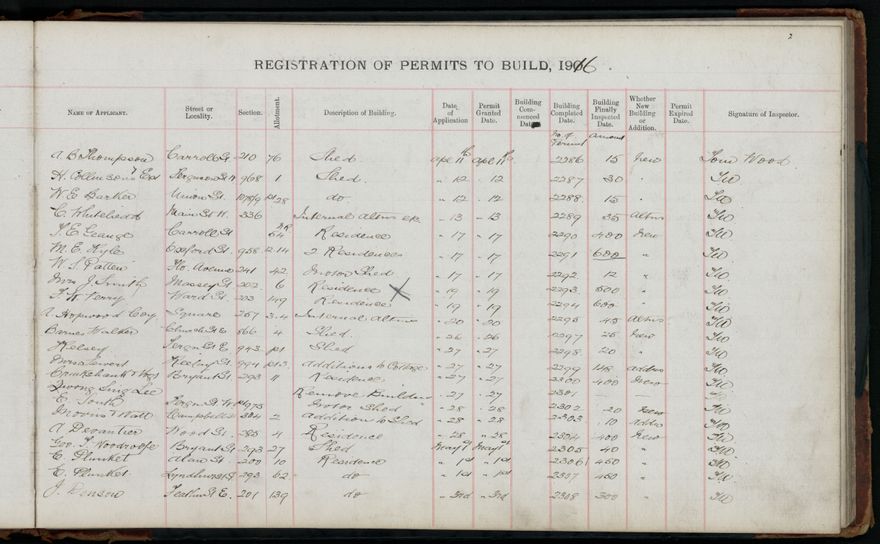 2
REGISTRATION OF PERMITS TO BUILD, 1916.
NAME OF APPLICANT. Street or Locality. Section. Allotment. Description of Building. Date of Application Permit Granted Date. Building Commenced Date Building Completed Date. Building Finally Inspected Date. Whether New Building or Addition. Permit Expired Date. Signature of Inspector.
No. of Permit Amount
A B Thompson Carroll St 210 76 Shed Apl 11th Apl 11th 2286 15 New Tom Wood
Ferguson St 968 1 Shed " 12 " 12 2287 30 " TW
W E Barker Union St 28 do " 12 " 12 2288 15 " TW
C. Whitehead Main St W. 336 Internal Altns " 13 " 13 2289 35 Altns TW
Carroll St Residence " 17 " 17 2290 400 New TW
M. E. Kyle Oxford St. 958 12.14 2 Residences " 17 " 17 2291 600 " TW
W. S. Patten 241 42 Motor Shed " 17 " 17 2292 12 " TW
Mrs J. Smith Massey St 202 6 Residence " 19 " 19 2293 500 " TW
T. W. Perry Ward St 149 Residence " 19 " 19 2294 600 " TW
A Hopwood Coy Square 257 3.4 Internal Altns " 20 " 20 2295 45 Altns TW
Barnes Walker Church St E 866 4 Shed " 26 " 26 2297 25 New TW
Kelsey Fergn St E. 943 pt Shed " 27 " 27 2298 20 " TW
Additions to Cottage " 27 " 27 2299 Addns TW
Bryant St 293 11 Residence " 27 " 27 2300 400 New TW
Sing Lee Remove Building " 27 " 27 2301 — — TW
E. South Fergn. St W. 975 Motor Shed " 28 " 28 2302 20 New TW
Morris & Wall Campbell St 334 2 Addition to Shed " 28 " 28 2303 10 Addns TW
A Devantier Wood St 285 4 Residence " 28 " 28 2304 400 New TW
Geo. T. Woodroofe Bryant St 293 27 Shed May 1st May 1st 2305 40 " TW
E. Plunket Alan St 200 10 Residence " 1st " 1st 2306 450 " TW
E. Plunket Lyndhurst St 293 62 do " 1st " 1st 2307 450 " TW
J. Benson Featherst E. 201 139 do " 3rd " 3rd 2308 300 " TW